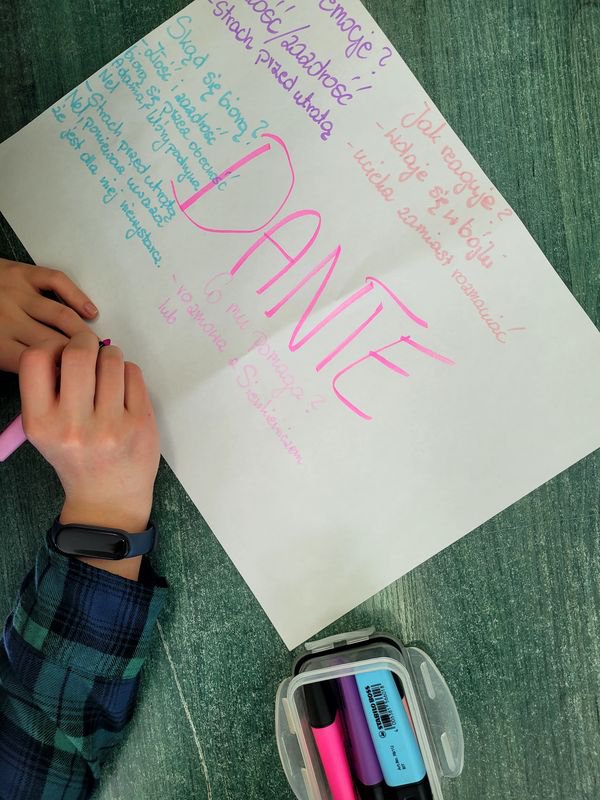 emocje?
złość/zazdrość
- strach przed utratą
Skąd się biorą?
- Złość i zazdrość
biorą się przez obecność
Adama z Wbrypodupia
Nel
- Strach przed utratą
Nel ponieważ uważa
że jest dla niej niewystarcz.
Jak reaguje?
- wdaje się w bójki
- ucieka zamiast rozmawiać
DANTE
Co mu pomaga?
- rozmowa z Sienkiewiczem
lub
STABILO BOSS